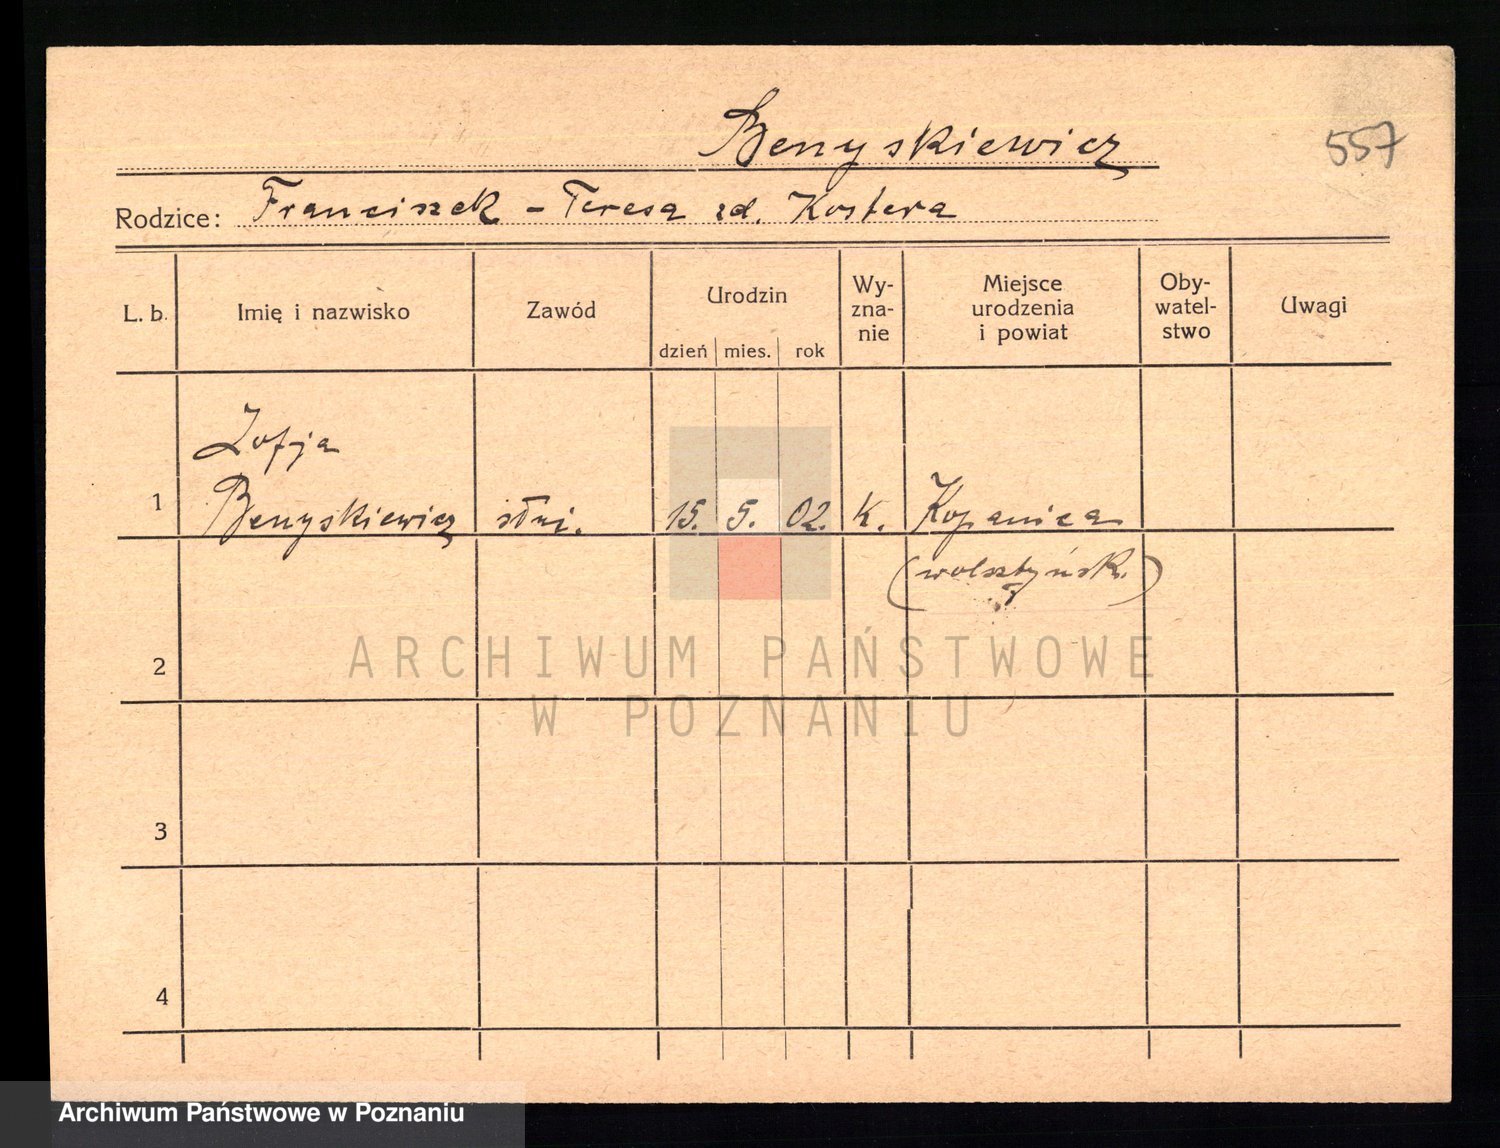 Benyskiewicz
557
Rodzice: Franciszek - Teresa zd. Kostera
L. b. Imię i nazwisko Zawód Urodzin dzień mies. rok Wy-zna-nie Miejsce urodzenia i powiat Oby-watel-stwo Uwagi
Zofja
1 Benyskiewicz służ. 15. 5. 02. K. Kopanica
(wolsztyńsk.)
2
ARCHIWUM PAŃSTWOWE
W POZNANIU
3
4
Archiwum Państwowe w Poznaniu